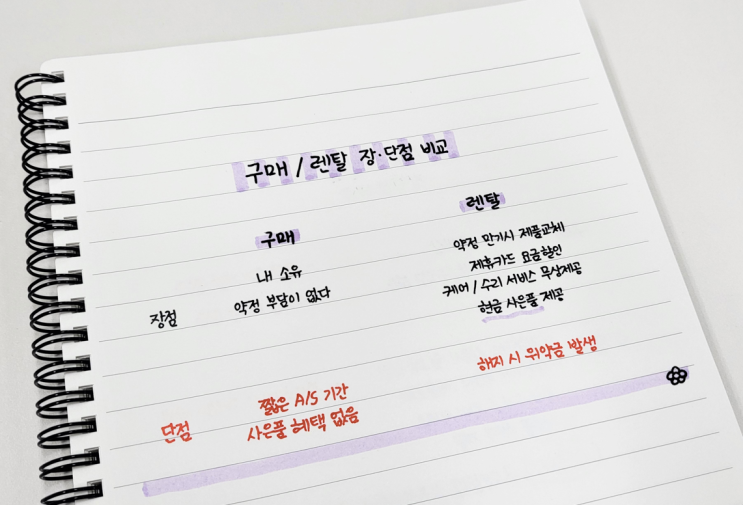 구매 / 렌탈 장·단점 비교
구매
렌탈
장점
내 소유
약정 부담이 없다
약정 만기시 제품교체
제휴카드 요금할인
케어 / 수리 서비스 무상제공
현금 사은품 제공
단점
짧은 A/S 기간
사은품 혜택 없음
해지 시 위약금 발생